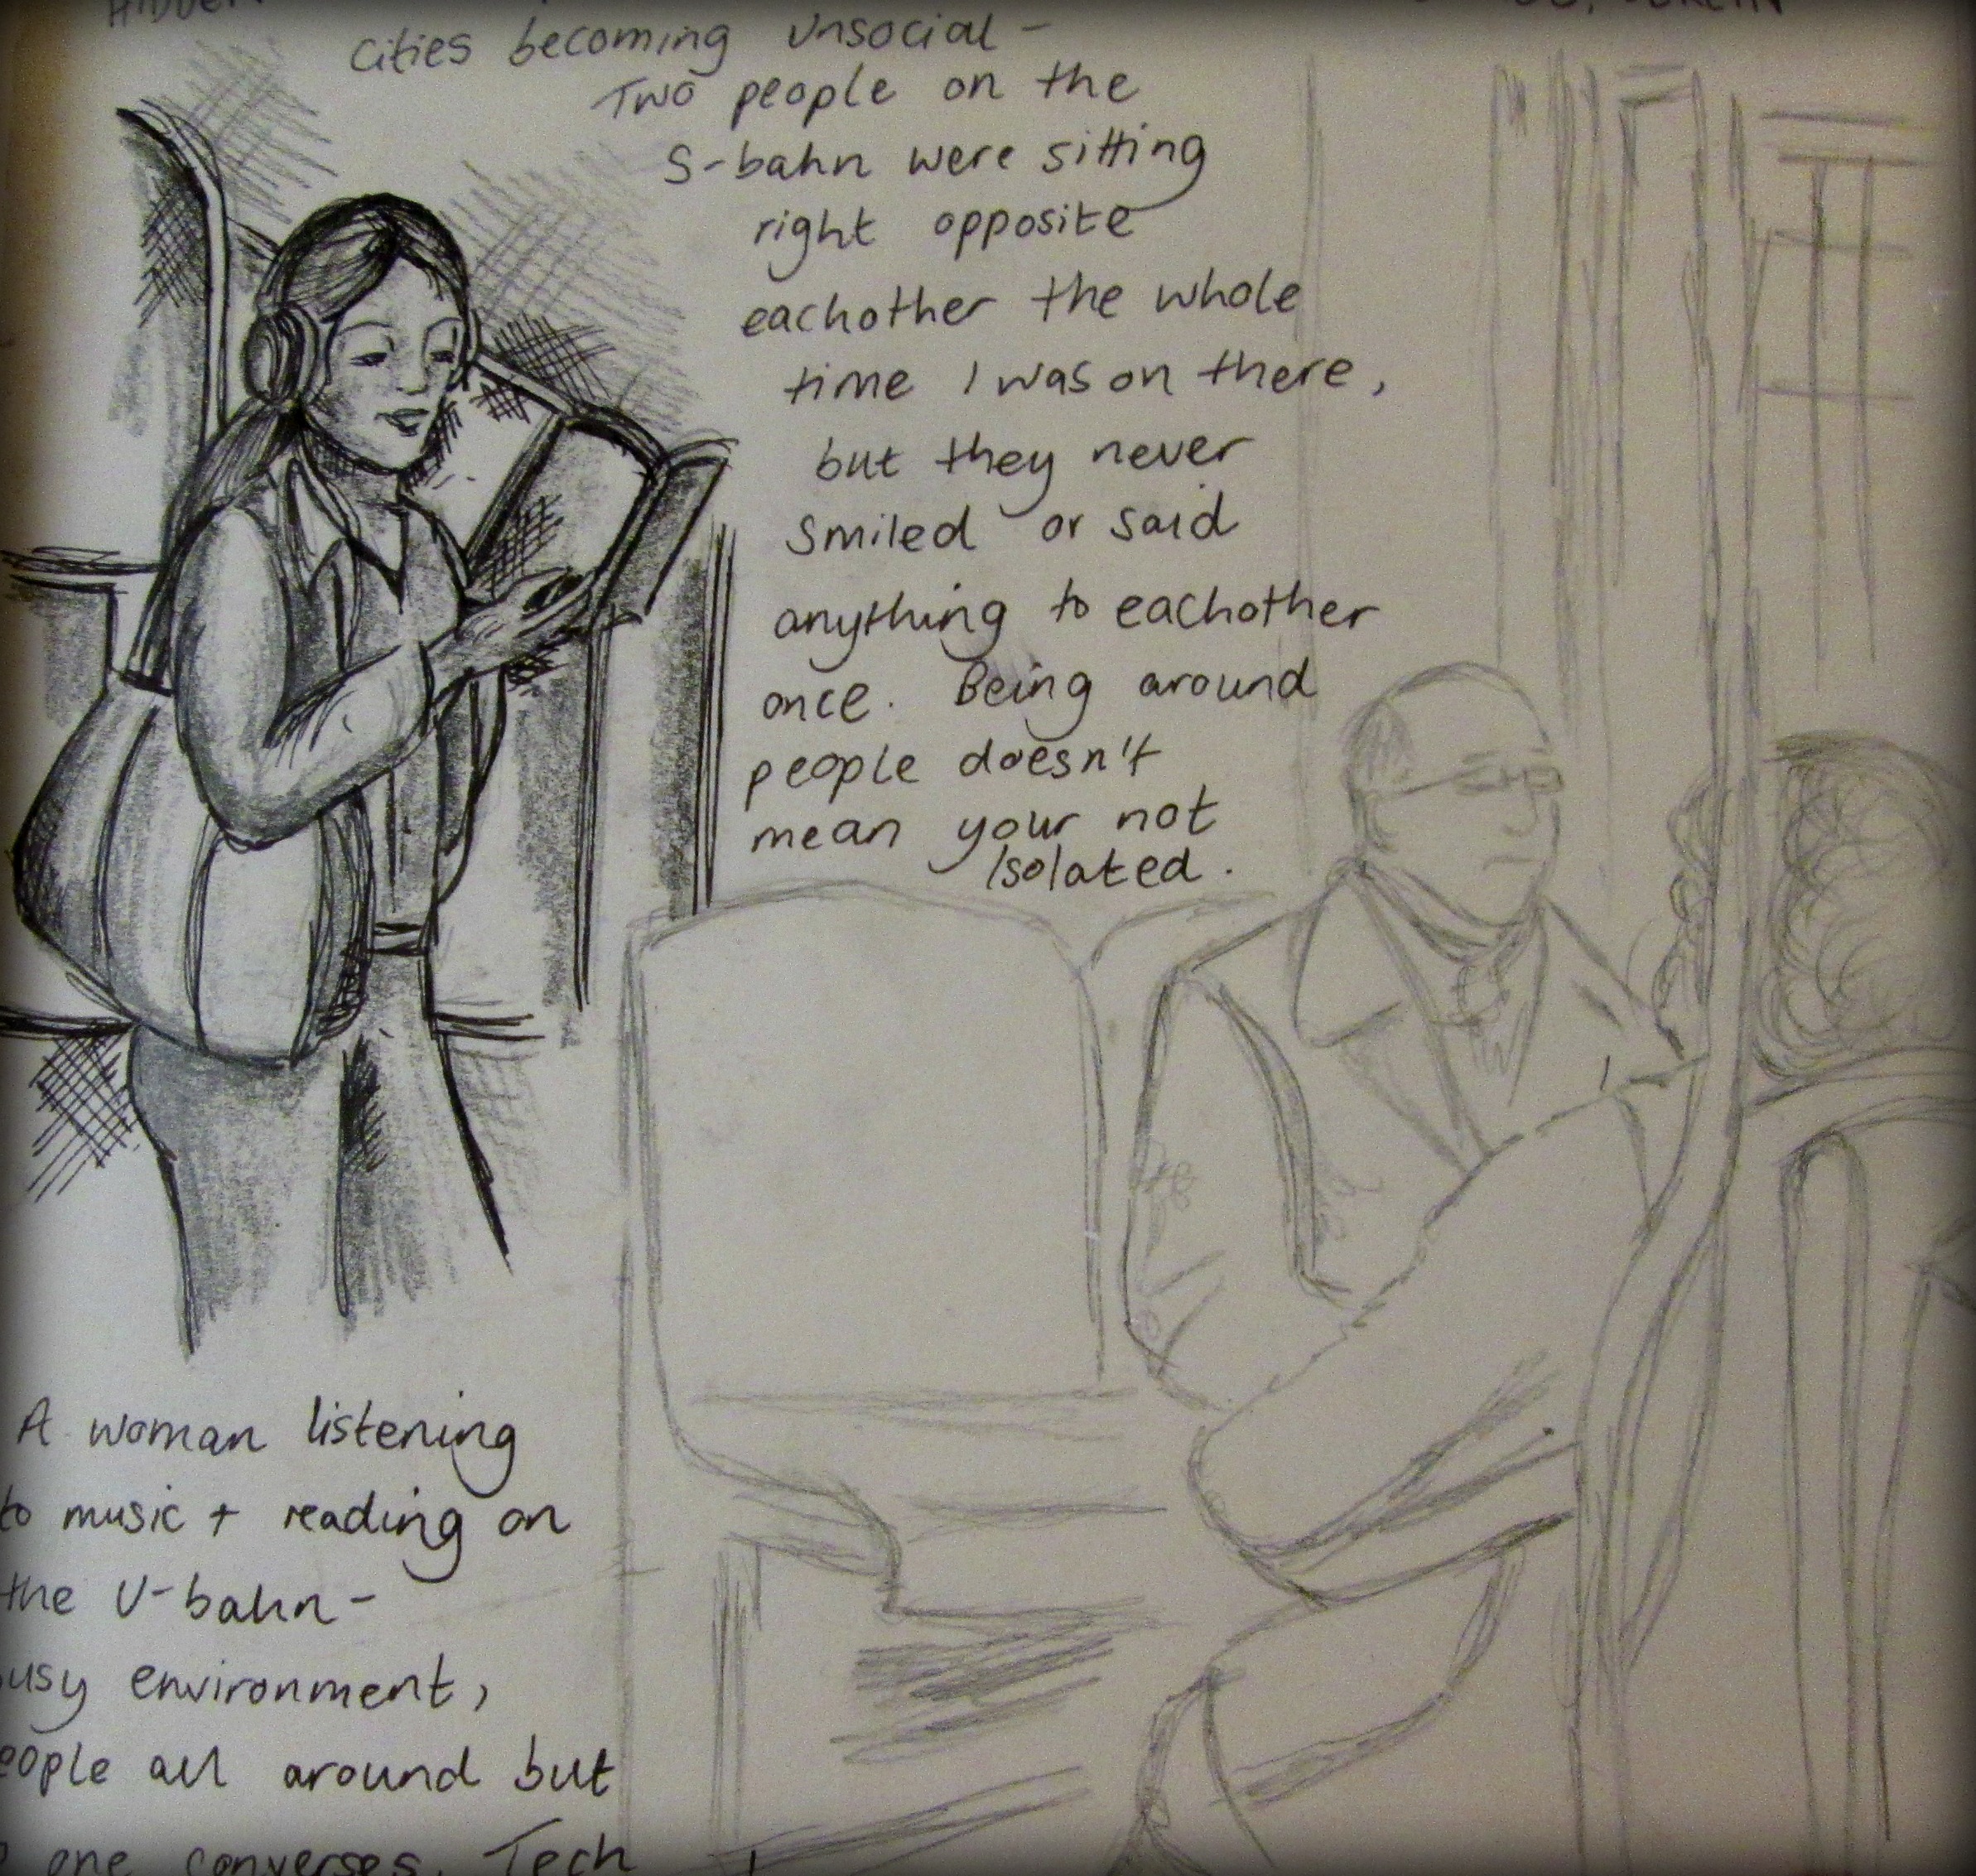 cities becoming unsocial -
Two people on the
S-bahn were sitting
right opposite
eachother the whole
time I was on there,
but they never
smiled or said
anything to eachother
once. Being around
people doesn't
mean your not
isolated.
A woman listening
to music + reading on
the U-bahn -
usy environment,
eople all around but
one converses. Tech